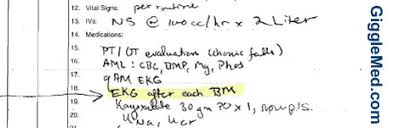 12. Vital Signs: per routine
13. IVs: NS @ 100cc/hr x 2 Liter
14. Medications:
15. PT/OT evaluation (chronic falls)
16. AML: CBC, BMP, Mg, Phos
17. qAM EKG
18. EKG after each BM
19. Kayexalate 30 gm PO x 1,
20. UNa, Ucr
GiggleMed.com